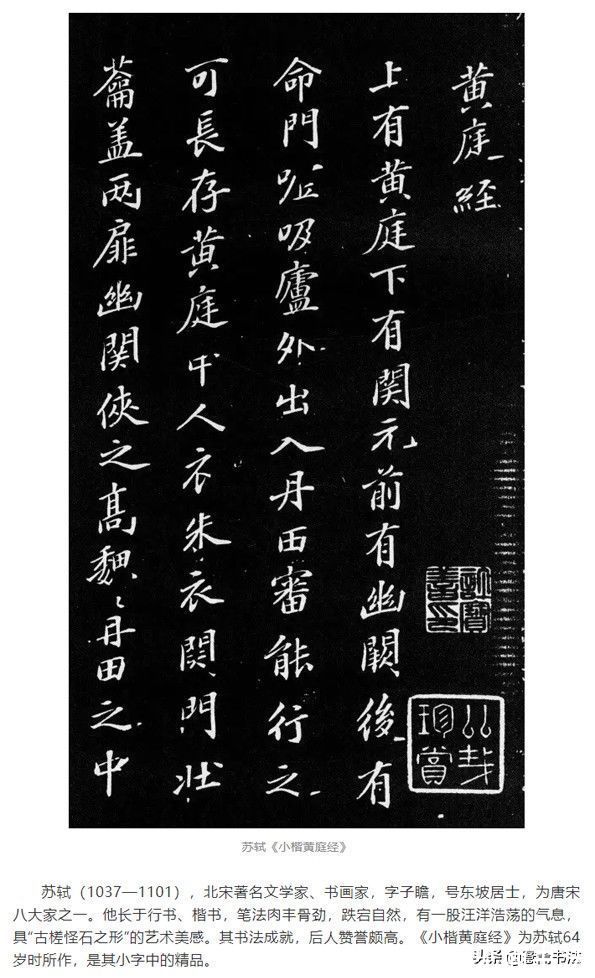 黄庭経
上有黄庭下有関元前有幽闕後有
命門呼吸廬外出入丹田審能行之
可長存黄庭中人衣朱衣関門壮
蘥盖两扉幽関俠之髙魏〻丹田之中
珍賞
苏轼《小楷黄庭经》
苏轼（1037—1101），北宋著名文学家、书画家，字子瞻，号东坡居士，为唐宋
八大家之一。他长于行书、楷书，笔法肉丰骨劲，跌宕自然，有一股汪洋浩荡的气息，
具“古槎怪石之形”的艺术美感。其书法成就，后人赞誉颇高。《小楷黄庭经》为苏轼64
岁时所作，是其小字中的精品。